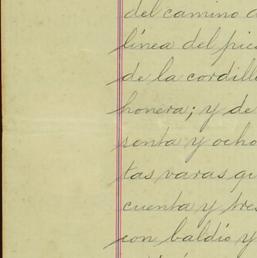 del camino d
línea del pic
de la cordill
honera; y de
senta y ocho
tas varas qu
cuenta y tres
con baldío y